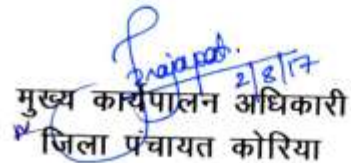 Prajapati.
2/8/17
मुख्य कार्यपालन अधिकारी
जिला पंचायत कोरिया